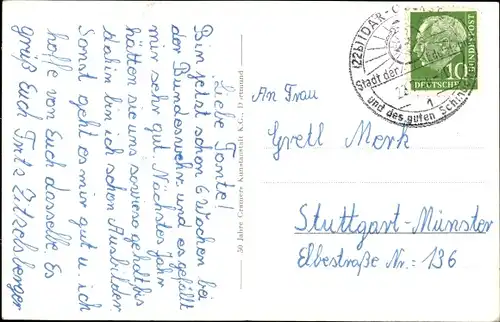 Liebe Tante!
Bin jetzt schon 6 Wochen bei
der Bundeswehr und es gefällt
mir sehr gut. Nächstes Jahr
hätten sie uns sowieso geholt bis
dahin bin ich schon Ausbilder.
Sonst geht es mir gut u. ich
hoffe von Euch dasselbe. Es
grüß Euch Fritz Zitzelsberger
50 Jahre Cramers Kunstanstalt K.G., Dortmund
(22b) IDAR-
Stadt der
und des guten
1
10
DEUTSCHE BUNDESPOST
An Frau
Gretl Merk
Stuttgart-Münster
Elbestraße Nr.: 136